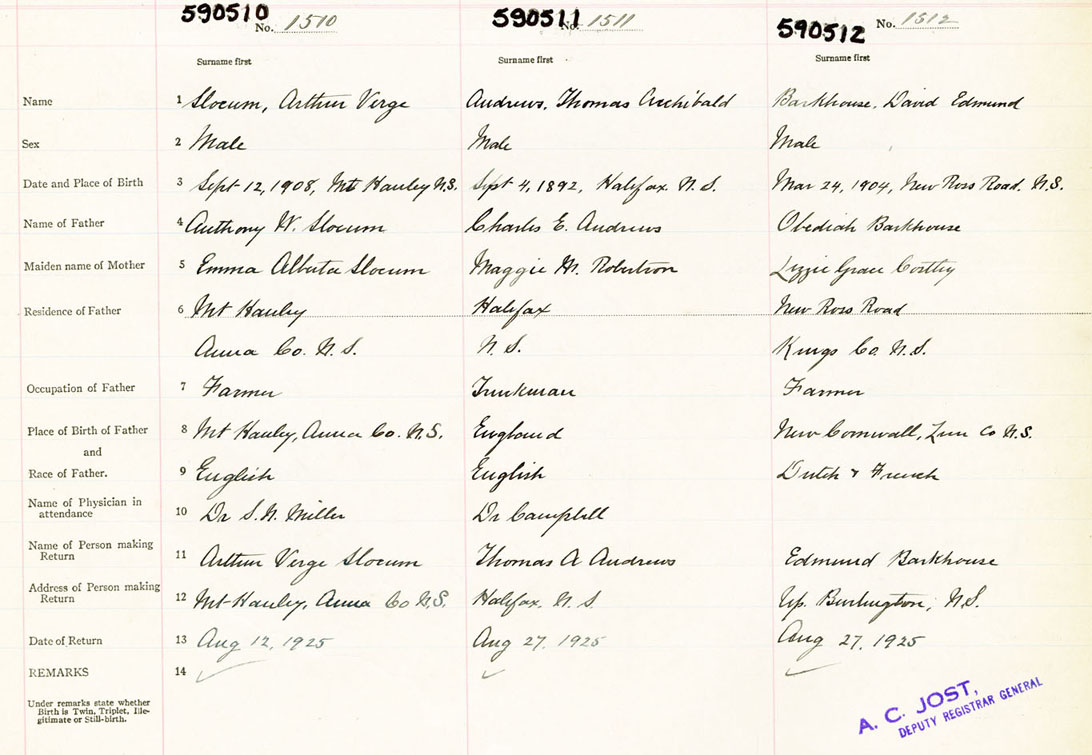 590510 No. 1510 590511 No. 1511 590512 No. 1512
Surname first Surname first Surname first
Name 1 Slocum, Arthur Verge Andrews, Thomas Archibald Barkhouse, David Edmund
Sex 2 Male Male Male
Date and Place of Birth 3 Sept 12, 1908, Mt Hanley N.S. Sept 4, 1892, Halifax N.S. Mar 24, 1904, New Ross Road, N.S.
Name of Father 4 Anthony W. Slocum Charles E. Andrews Obediah Barkhouse
Maiden name of Mother 5 Emma Alberta Slocum Maggie M. Robertson Lizzie Grace
Residence of Father 6 Mt Hanley Halifax New Ross Road
Anna Co. N.S. N.S. Kings Co. N.S.
Occupation of Father 7 Farmer Truckman Farmer
Place of Birth of Father 8 Mt Hanley, Anna Co. N.S. England New Cornwall, Lun Co N.S.
and
Race of Father. 9 English English Dutch & French
Name of Physician in
attendance 10 Dr S. N. Miller Dr Campbell
Name of Person making
Return 11 Arthur Verge Slocum Thomas A Andrews Edmund Barkhouse
Address of Person making
Return 12 Mt Hanley, Anna Co N.S. Halifax, N.S. Up. Burlington, N.S.
Date of Return 13 Aug 12, 1925 Aug 27, 1925 Aug 27, 1925
REMARKS 14
Under remarks state whether
Birth is Twin, Triplet, Ille-
gitimate or Still-birth.
A. C. JOST,
DEPUTY REGISTRAR GENERAL